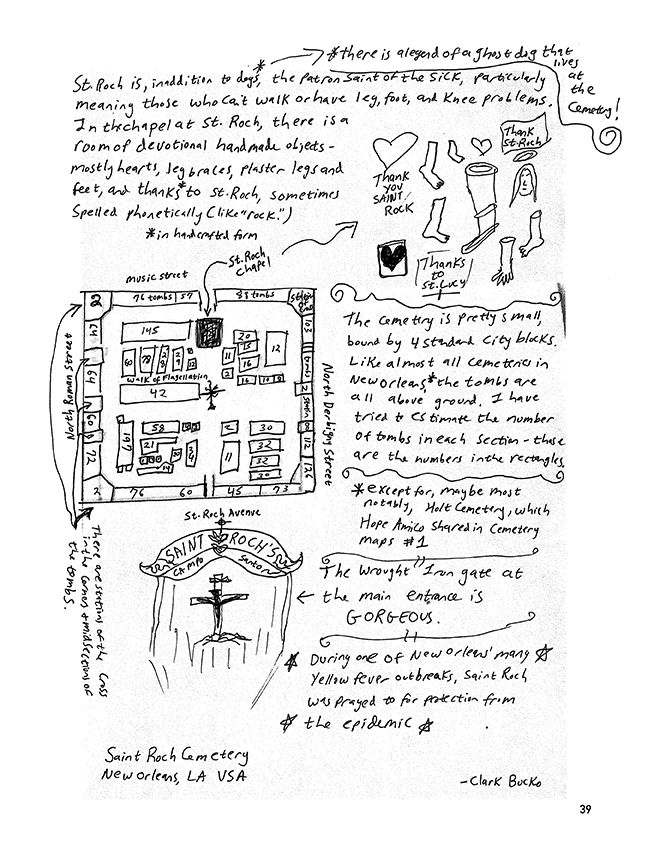 *there is a legend of a ghost dog that
lives
at
the
Cemetery!
St. Roch is, inaddition to dogs,* the patron saint of the sick, particularly
meaning those who can't walk or have leg, foot, and knee problems.
In the chapel at St. Roch, there is a
room of devotional handmade objects-
mostly hearts, leg braces, plaster legs and
feet, and thanks* to St. Roch, sometimes
Spelled phonetically (like "rock.")
*in handcrafted form
Thank
St. Roch
THANK
YOU
SAINT
ROCK
Thanks
to
St. Lucy
St. Roch
Chapel
music street
76 tombs
57
83 tombs
64
64
60
72
2
76
60
45
73
145
20
16
12
11
Walk of Flagellation
42
197
58
21
11
30
32
32
30
103
112
North Roman street
North Derbigny Street
St. Roch Avenue
The cemetery is pretty small,
bound by 4 standard city blocks.
Like almost all cemeteries in
New Orleans* the tombs are
all above ground. I have
tried to estimate the number
of tombs in each section - those
are the numbers in the rectangles.
*except for, maybe most
notably, Holt Cemetery, which
Hope Amico shared in Cemetery
maps #1
There are stations of the Cross
in the corners + midsection of
the tombs.
SAINT ROCH'S
CAMPO Santo
The wrought Iron gate at
the main entrance is
GORGEOUS.
During one of New Orleans' many
Yellow fever outbreaks, Saint Roch
was prayed to for protection from
the epidemic
Saint Roch Cemetery
New Orleans, LA USA
-Clark Bucko
39